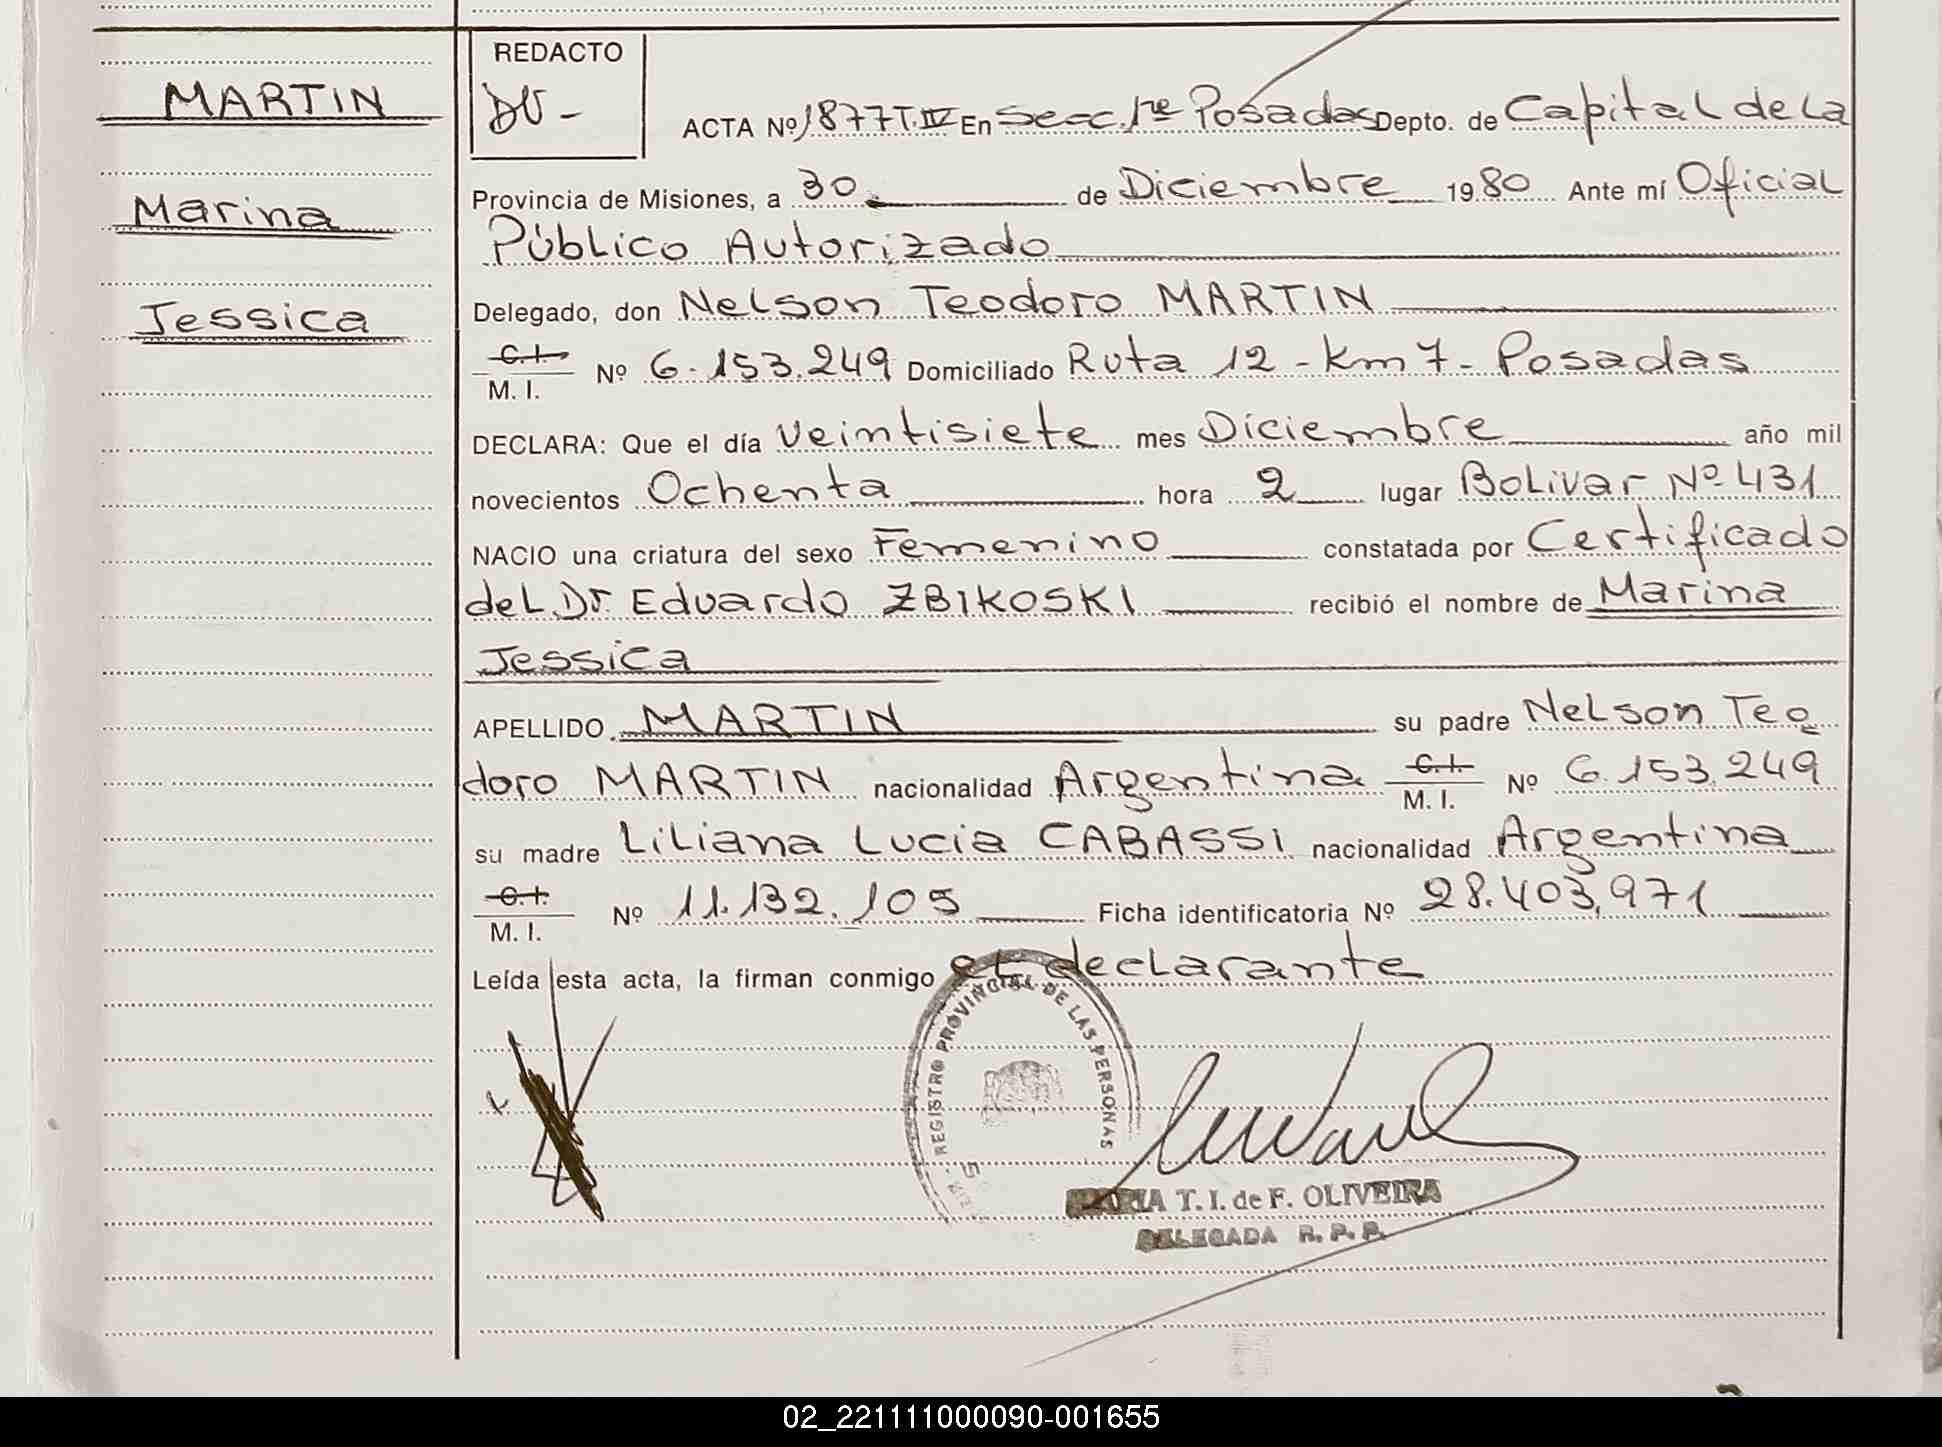 MARTIN
Marina
Jessica
REDACTO
ACTA Nº 1877 T. IV En Secc. 1re Posadas Depto. de Capital de La
Provincia de Misiones, a 30 de Diciembre 1980 Ante mí Oficial
Público Autorizado
Delegado, don Nelson Teodoro MARTIN
C.I.
M. I. Nº 6.153.249 Domiciliado Ruta 12 - Km 7 - Posadas
DECLARA: Que el día Veintisiete mes Diciembre año mil
novecientos Ochenta hora 2 lugar Bolivar Nº 431
NACIO una criatura del sexo Femenino constatada por Certificado
del Dr. Eduardo ZBIKOSKI recibió el nombre de Marina
Jessica
APELLIDO MARTIN su padre Nelson Teo
doro MARTIN nacionalidad Argentina C.I. M. I. Nº 6.153.249
su madre Liliana Lucia CABASSI nacionalidad Argentina
C.I.
M. I. Nº 11.132.105 Ficha identificatoria Nº 28.403.971
Leída esta acta, la firman conmigo el declarante
REGISTRO PROVINCIAL DE LAS PERSONAS
T. I. de F. OLIVEIRA
DELEGADA R. P. P.
02_221111000090-001655